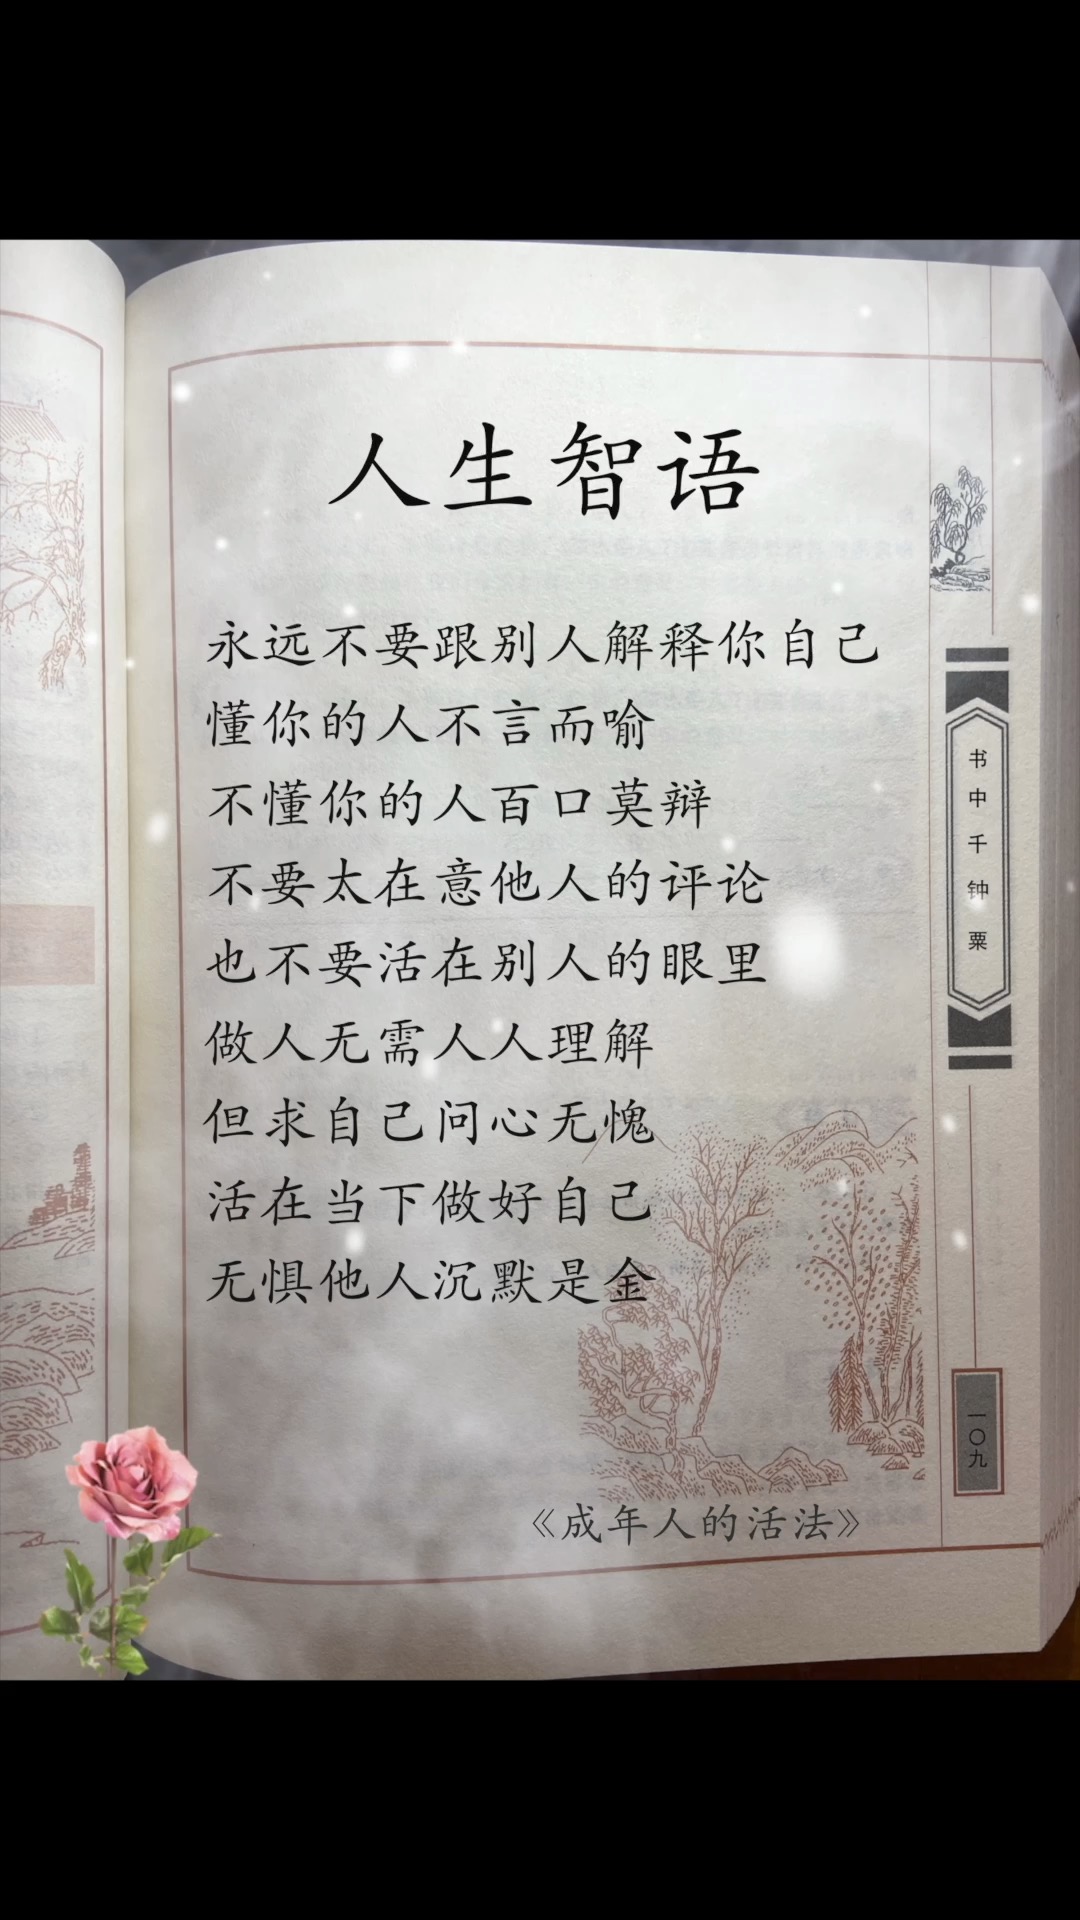 人生智语
永远不要跟别人解释你自己
懂你的人不言而喻
不懂你的人百口莫辩
不要太在意他人的评论
也不要活在别人的眼里
做人无需人人理解
但求自己问心无愧
活在当下做好自己
无惧他人沉默是金
《成年人的活法》
书中千钟粟
一〇九